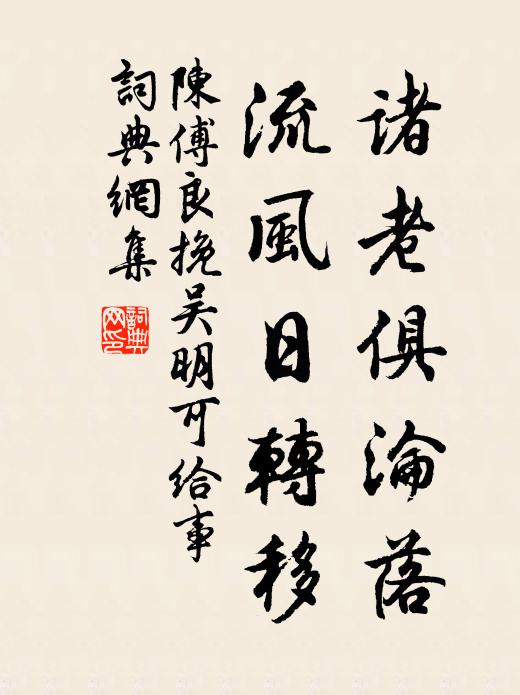 诸老俱淪落
流風日轉移
陳傅良挽吴明可给事
詞典網集
詞典网印